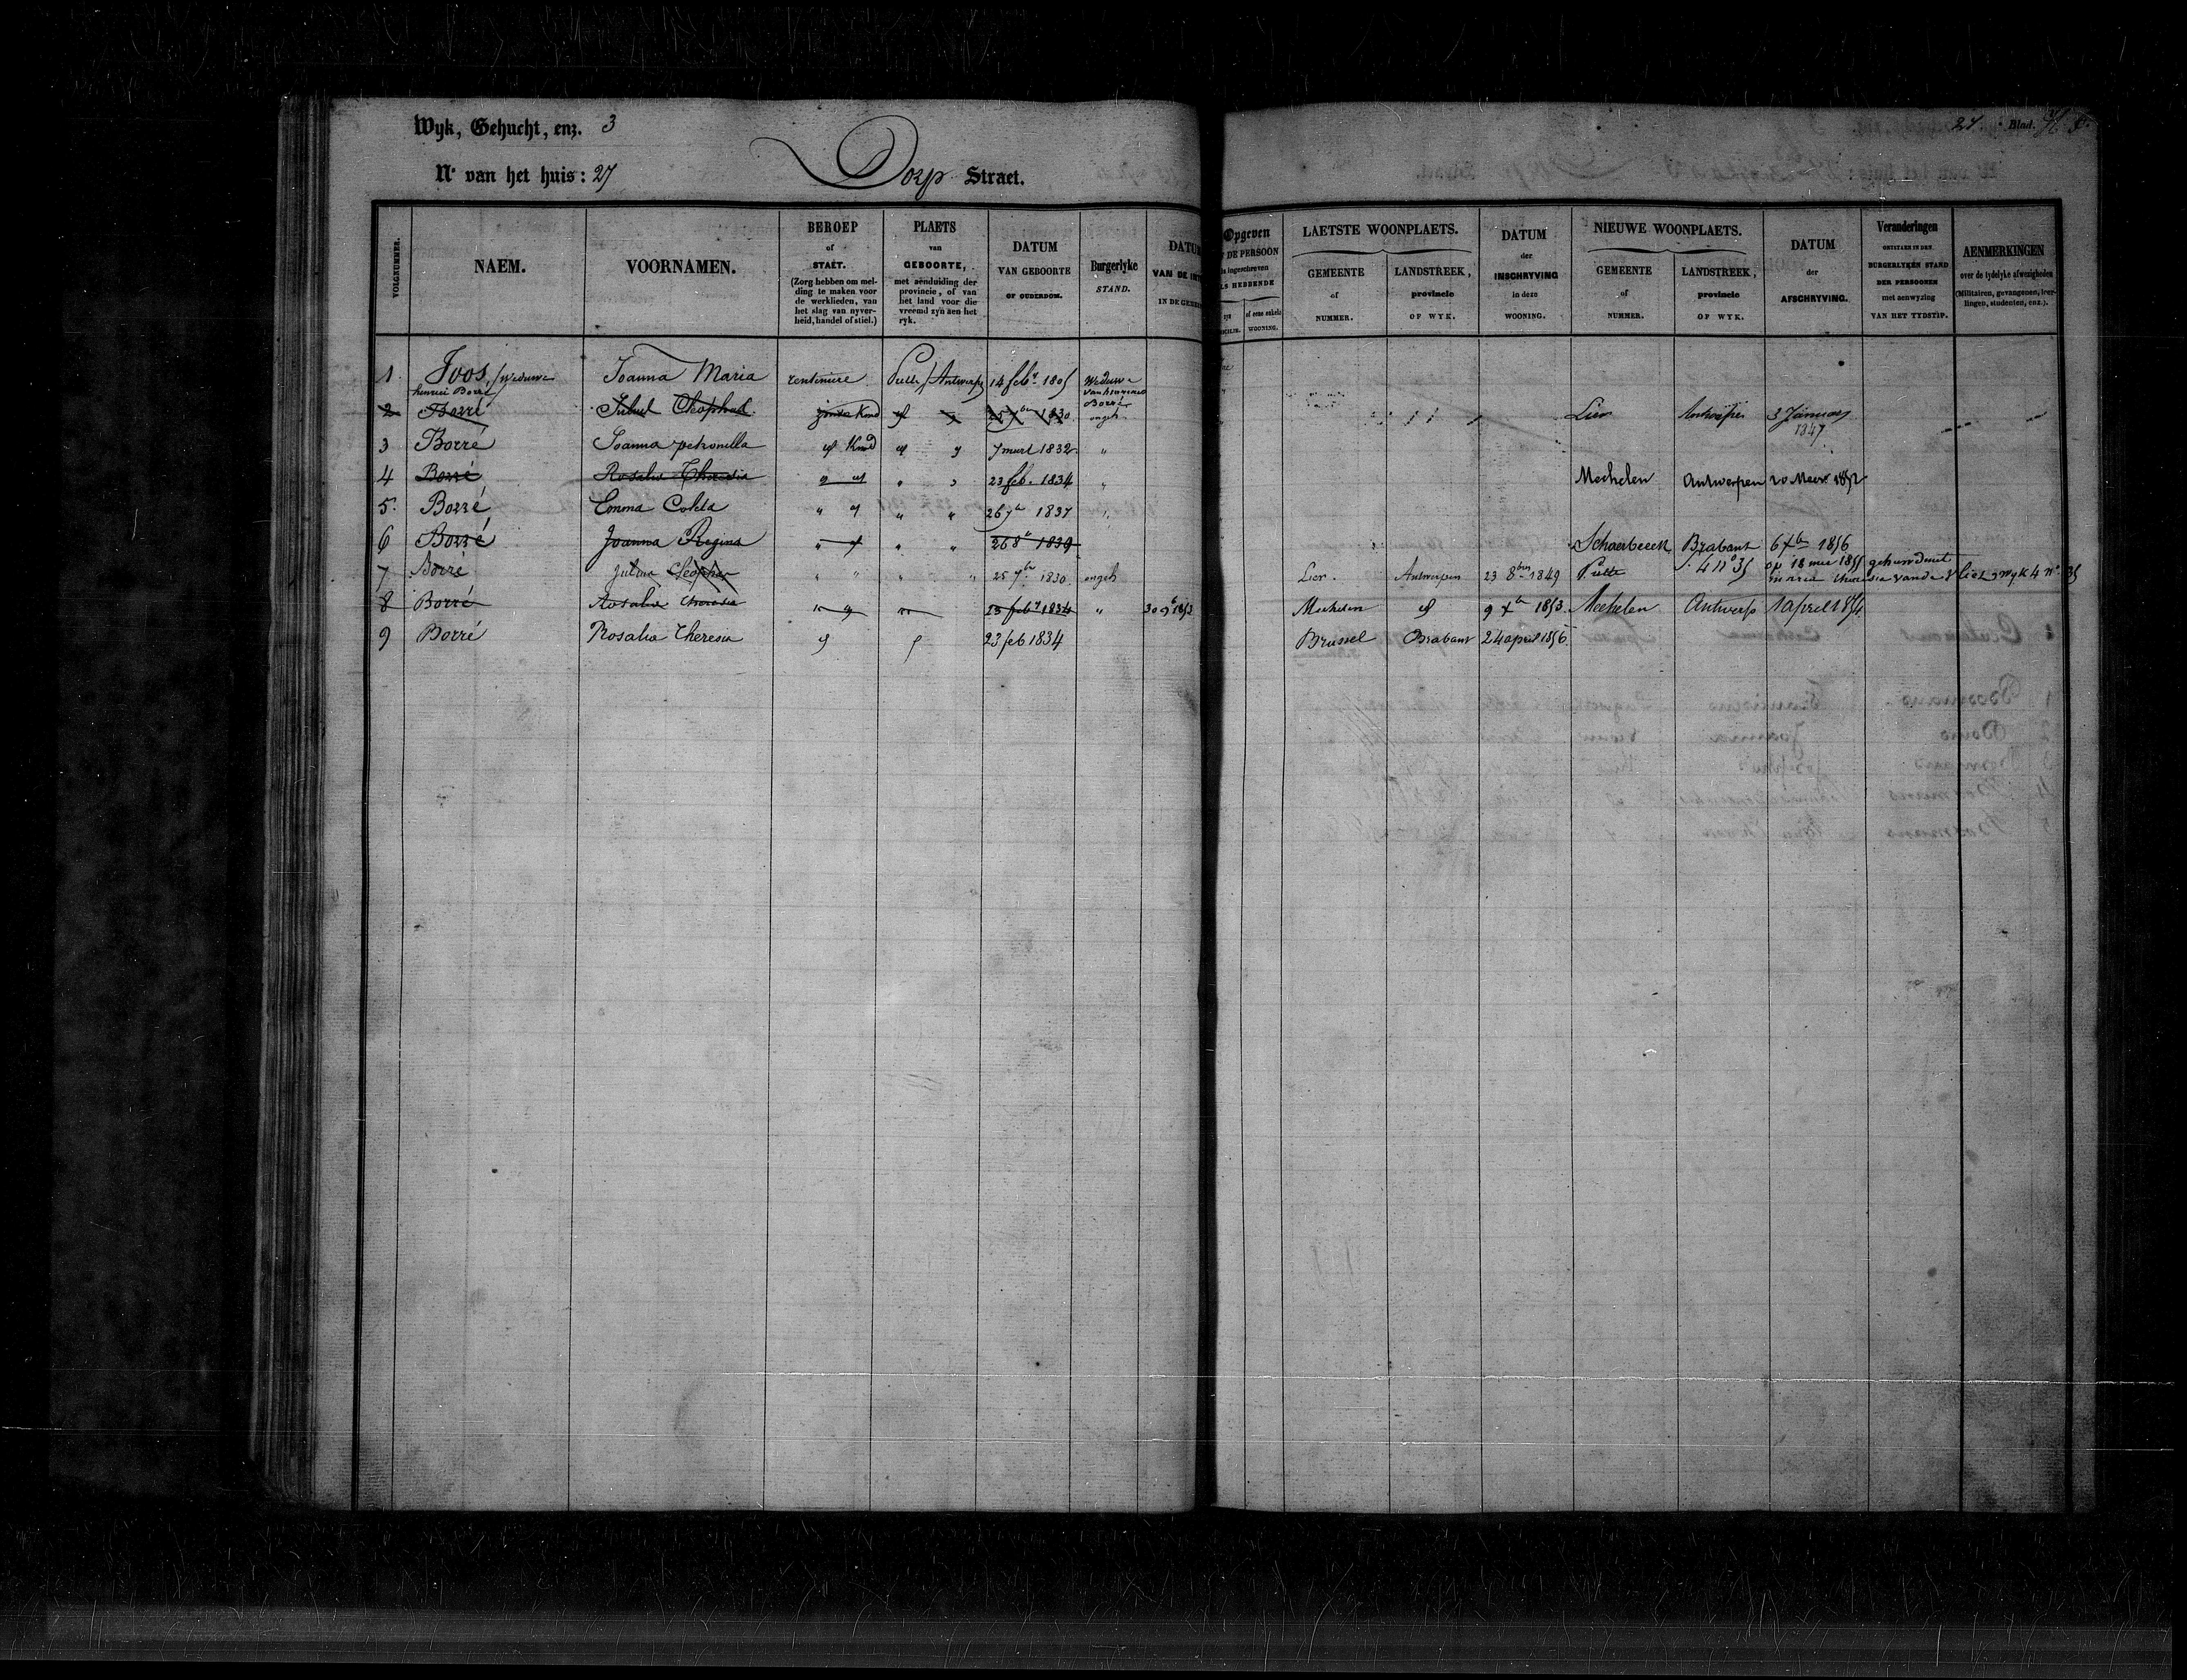 Wyk, Gehucht, enz. 3
Nr van het huis: 27
Dorp Straet.
27. Blad.
VOLGNUMMER.
NAEM.
VOORNAMEN.
BEROEP
of
STAET.
(Zorg hebben om mel-
ding te maken voor
de werklieden, van
het slag van nyver-
heid, handel of stiel.)
PLAETS
van
GEBOORTE,
met aenduiding der
provincie, of van
het land voor die
vreemd zyn aen het
ryk.
DATUM
VAN GEBOORTE
OF OUDERDOM.
Burgerlyke
STAND.
DATU
VAN DE INT
IN DE GEMEE
Opgeven
DE PERSOON
is ingeschreven
LS HEBBENDE
zyn
of eene enkele
WOONING.
LAETSTE WOONPLAETS.
GEMEENTE
of
NUMMER.
LANDSTREEK,
provincie
OF WYK.
DATUM
der
INSCHRYVING
in deze
WOONING.
NIEUWE WOONPLAETS.
GEMEENTE
of
NUMMER.
LANDSTREEK,
provincie
OF WYK.
DATUM
der
AFSCHRYVING.
Veranderingen
ONTSTAEN IN DEN
BURGERLYKEN STAND
DER PERSOONEN
met aenwyzing
VAN HET TYDSTIP.
AENMERKINGEN
over de tydelyke afwezigheden
(Militairen, gevangenen, leer-
lingen, studenten, enz.).
1 Joos, / Weduwe Joanna Maria rentiniere Putte / Antwerp 14 febr 1805 Weduwe
henrici Borré van henricus
Borré
2 Borré Juliul Cleophas Kind 25 7ber 1830 ongeh Lier Antwerpen 3 January
1847
3 Borré Joanna petronilla Kind 7 mars 1832 "
4 Borré Rosalia Theresia " " 23 feb. 1834 " Mechelen Antwerpen 20 Meert 1852
5. Borré Emma Coleta " " " 26 7br 1837 "
6 Borré Joanna Regina " " " 26 8r 1839 Schaerbeeck Brabant 6 Xbr 1856
7 Borré Julius Cleophas " " " " 25 7br 1830 ongeh Lier. Antwerpen 23 8ber 1849 Putte 4 n° 35 op 18 mei 1855 gehuwd met
maria theresia vande Vliet wyk 4 n° 35
8 Borré Rosalia Theresia " 23 febr 1834 " 30 9br 1853 Mechelen 9 Xbr 1853. Mechelen Antwerp 1 april 1854
9 Borré Rosalia Theresia 23 feb 1834 Brussel Brabant 24 april 1856